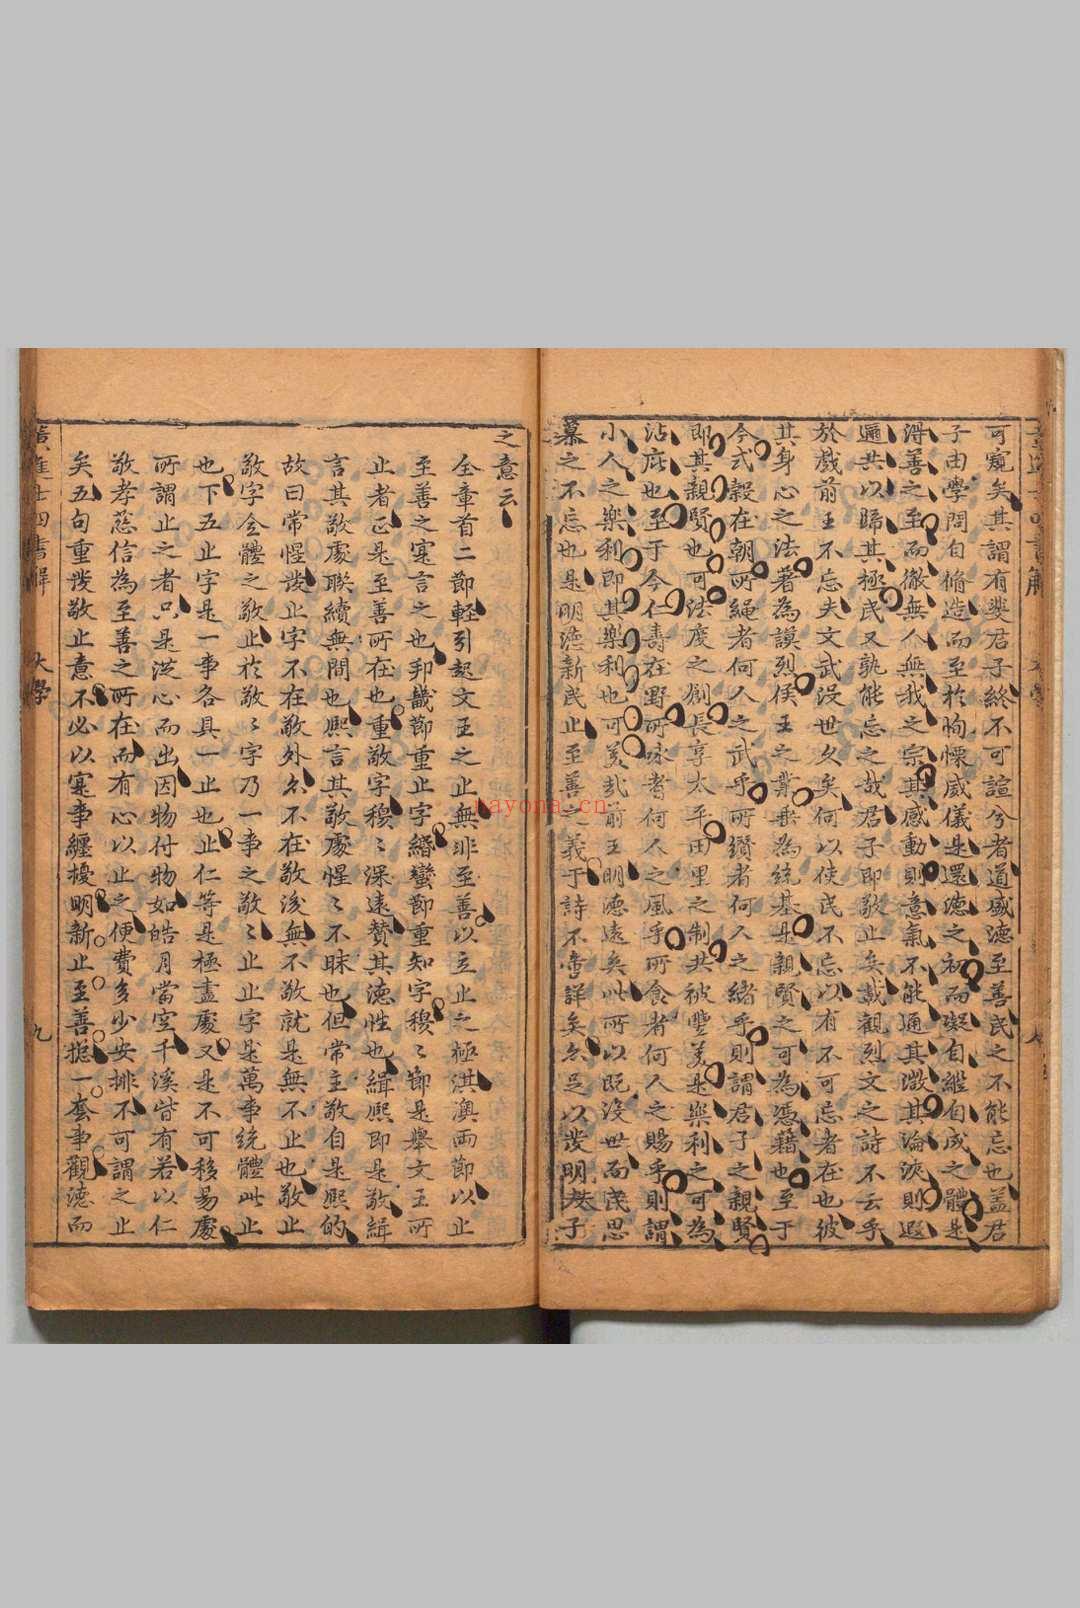 可窺矣其謂有斐君子終不可諠兮者道盛德至善民之不能忘也蓋君
子由學問自脩造而至於恂慄威儀是還德之初而凝自繼自成之體是
得善之至而徹無人無我之宗其感動則意氣不能通其激其淪浹則遐
邇共以歸其極民又孰能忘之哉君子即敬止矣載觀烈文之詩不云乎
於戲前王不忘夫文武沒世久矣何以使民不忘以有不可忘者在也彼
其身心之法著為謨烈侯王之業垂為統基是親賢之可為憑藉也至于
今式穀在朝所繩者何人之武乎所纘者何人之緒乎則謂君子之親賢
即其親賢也可法度之創長享太平田里之制共被豐美是樂利之可為
沾庇也至于今仁壽在野所詠者何人之風乎所食者何人之賜乎則謂
小人之樂利即其樂利也可美哉前王明德遠矣此所以既沒世而民思
慕之不忘也是明德新民止至善之義于詩不啻詳矣亦足以發明夫子
之意云
全章首二節輕引起文王之止無非至善以立止之極洪澳兩節以止
至善之寔言之也邦畿節重止字緡蠻節重知字穆〻節是舉文王所
止者正是至善所在也重敬字穆〻深遠贊其德性也緝熙即是敬緝
言其敬處聯續無間也熙言其敬處惺〻不昧也但常主敬自是熙的
故曰常惺發止字不在敬外亦不在敬後無不敬就是無不止也敬止
敬字全體之敬止於敬〻字乃一事之敬〻止止字是萬事統體此止
也下五止字是一事各具一止也止仁等是極盡處又是不可移易處
所謂止之者只是從心而出因物付物如皓月當空千溪皆有若以仁
敬孝慈信為至善之所在而有心以止之便費多少安排不可謂之止
矣五句重發敬止意不必以寔事纏擾明新止至善揔一套事觀德而
大學
九
nayona.cn